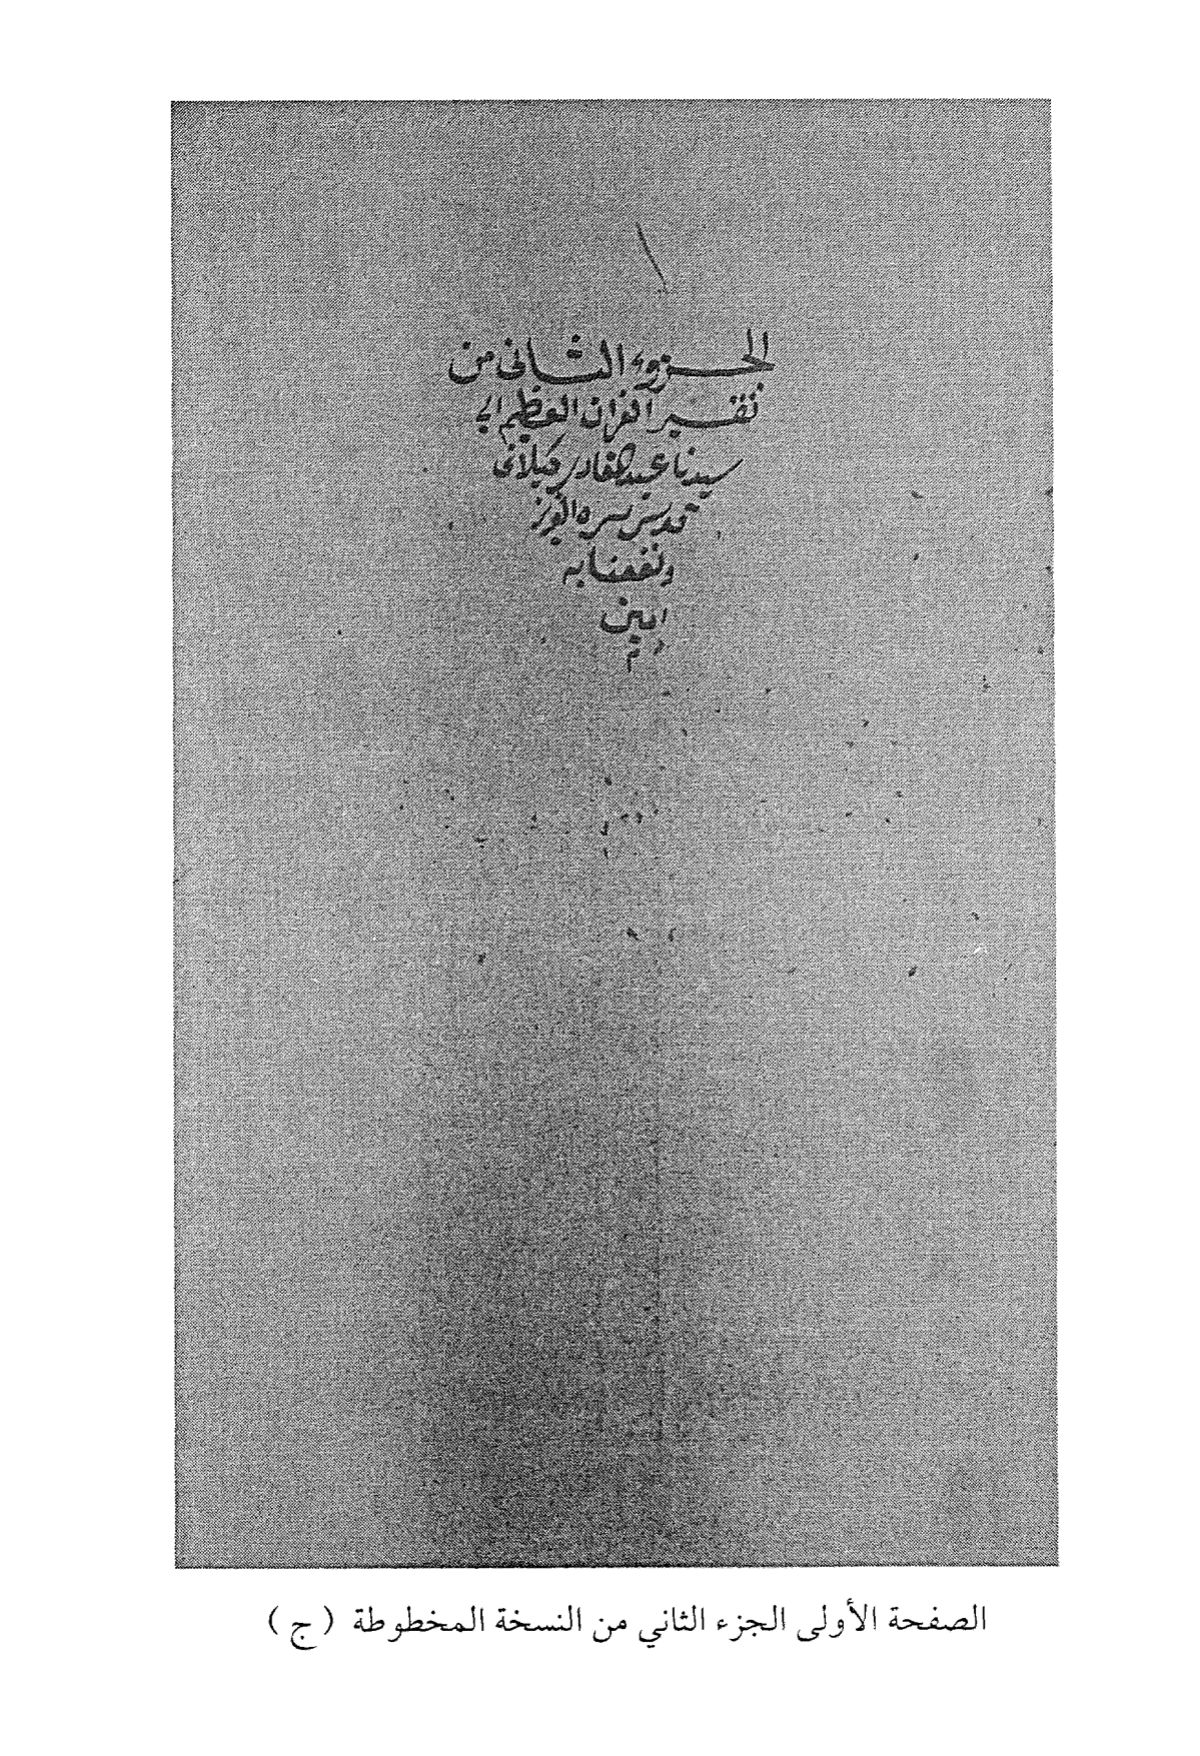 الجزوء الثانى من
تفسير القران العظيم الى
سيدنا عبد القادر كيلانى
قدس سره العزيز
ونفعنا به
امين
م
الصفحة الأولى الجزء الثاني من النسخة المخطوطة ( ج )